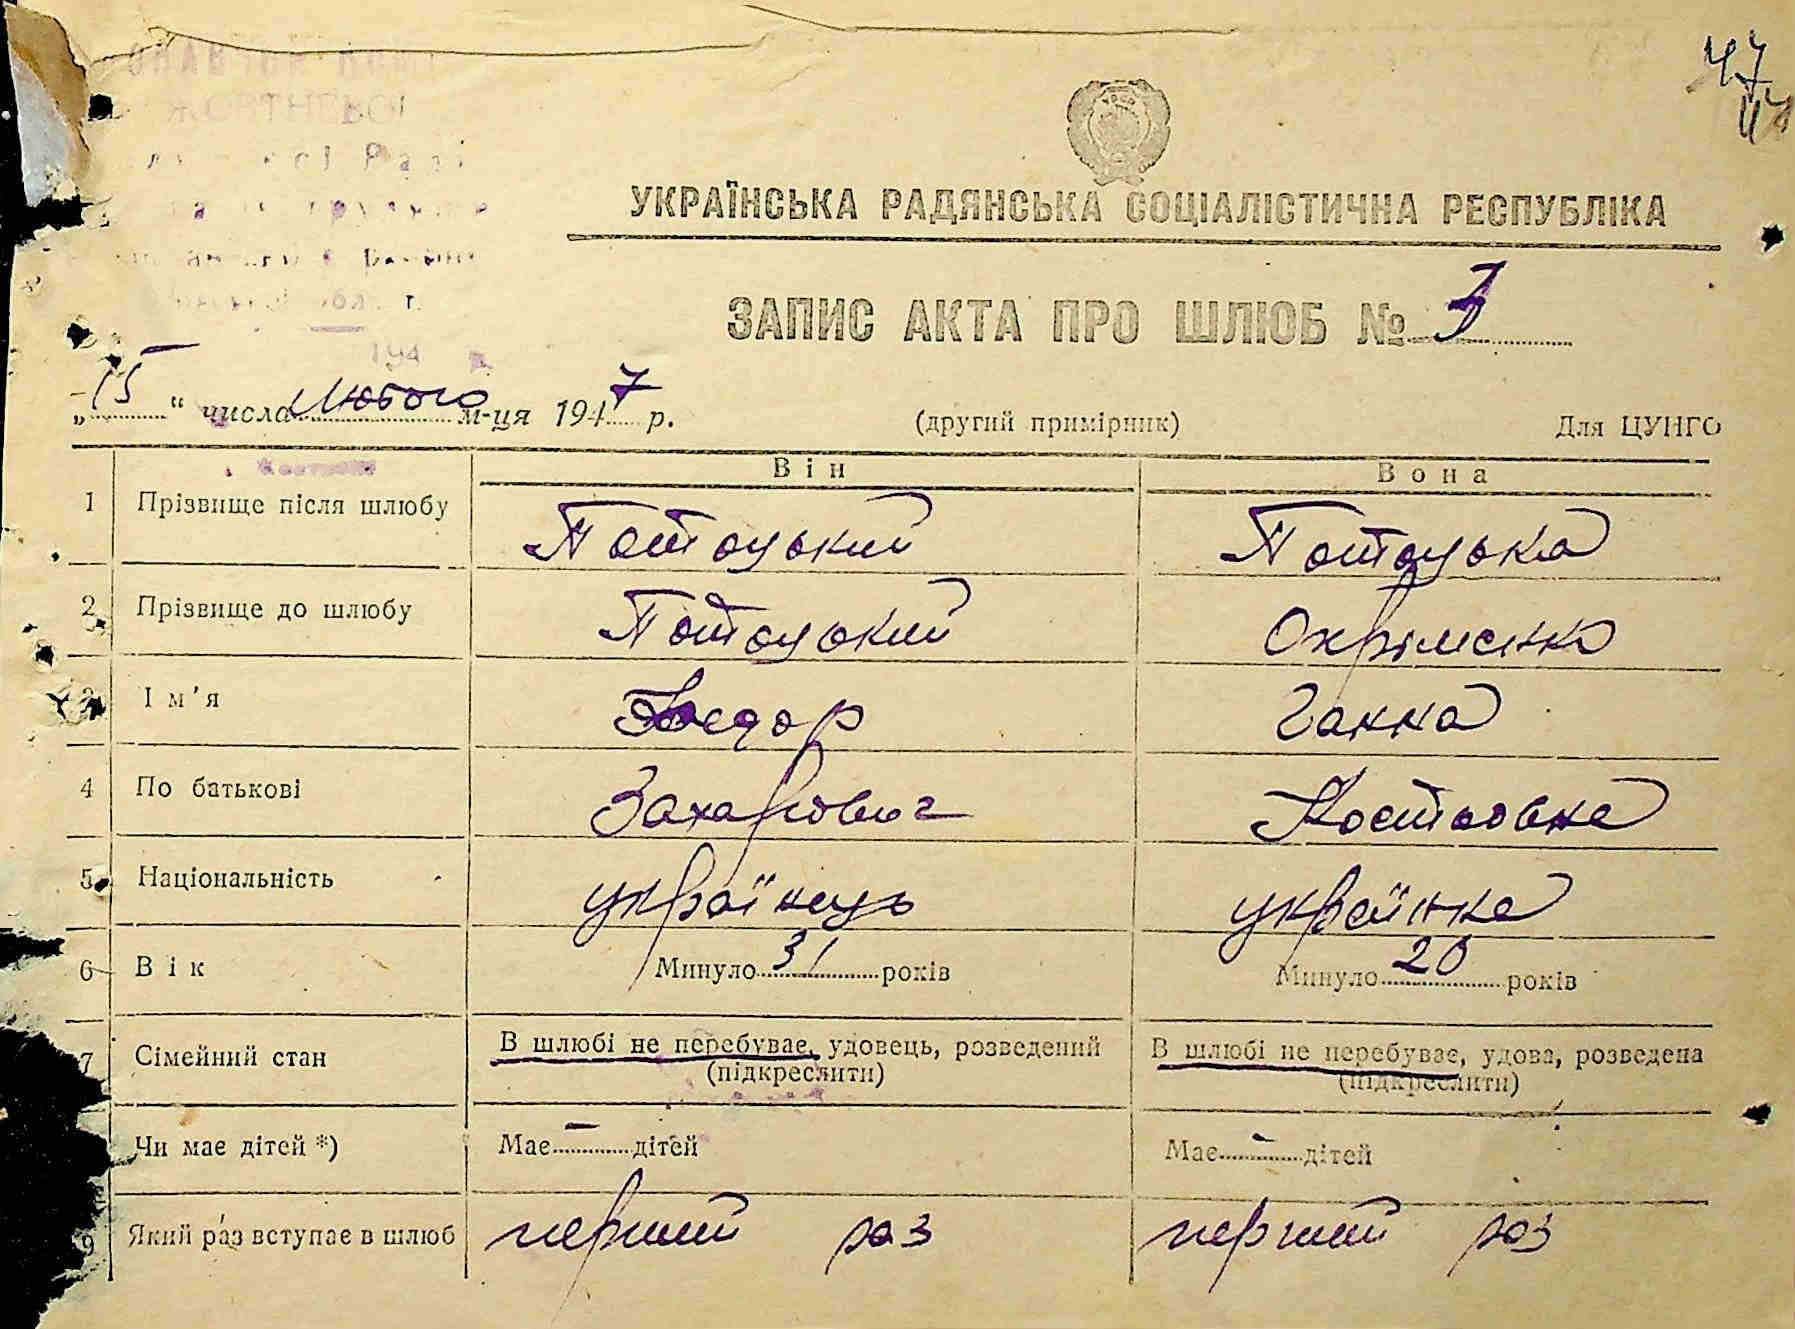 47
47
ЖОВТНЕВОЇ
УКРАЇНСЬКА РАДЯНСЬКА СОЦІАЛІСТИЧНА РЕСПУБЛІКА
ЗАПИС АКТА ПРО ШЛЮБ №
„15“ числа Лютого м-ця 1947 р. (другий примірник) Для ЦУНГО
Він Вона
1 Прізвище після шлюбу Потоцький Потоцька
2 Прізвище до шлюбу Потоцький Охріменко
3 Ім'я Федор Ганна
4 По батькові Захарович Костьовна
5 Національність українець українка
6 Вік Минуло 31 років Минуло 20 років
7 Сімейний стан В шлюбі не перебуває, удовець, розведений (підкреслити) В шлюбі не перебуває, удова, розведена (підкреслити)
Чи має дітей *) Має — дітей Має — дітей
9 Який раз вступає в шлюб перший раз перший раз